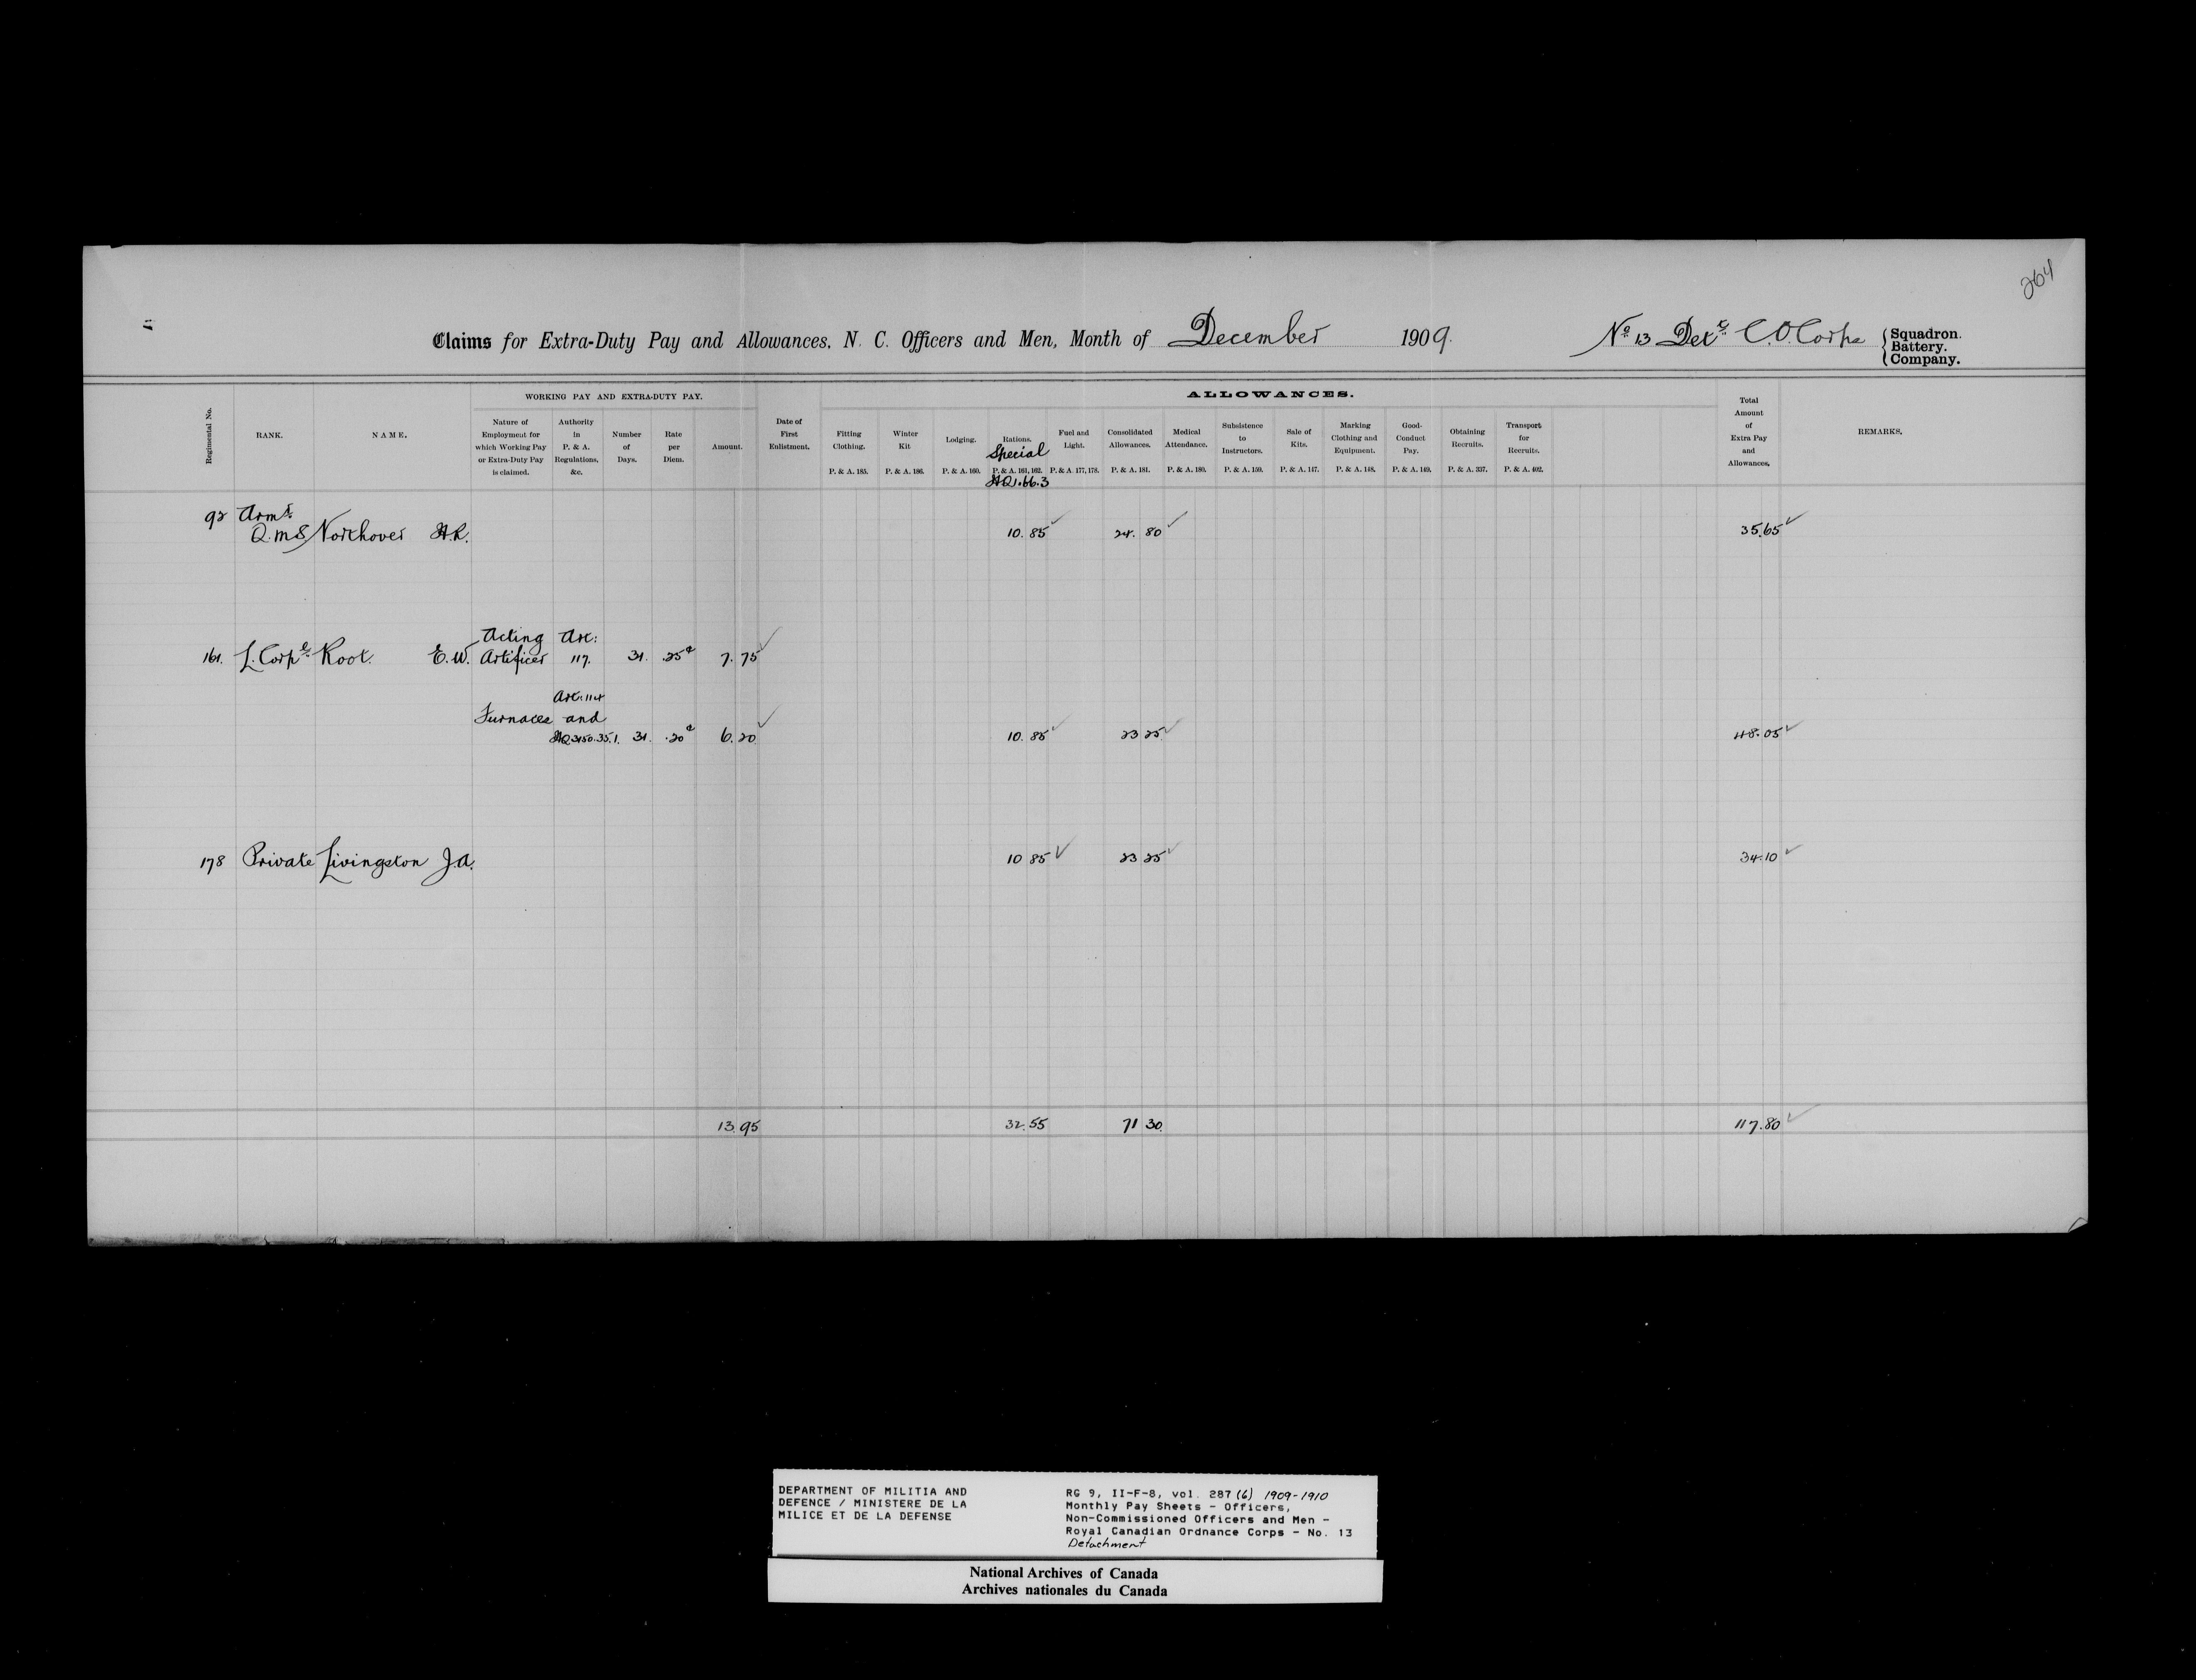 264
Claims for Extra-Duty Pay and Allowances, N. C. Officers and Men, Month of December 1909. No 13 Det. C.O. Corps { Squadron. Battery. Company.
WORKING PAY AND EXTRA-DUTY PAY.
ALLOWANCES.
Regimental No.
RANK.
NAME.
Nature of Employment for which Working Pay or Extra-Duty Pay is claimed.
Authority in P. & A. Regulations, &c.
Number of Days.
Rate per Diem.
Amount.
Date of First Enlistment.
Fitting Clothing. P. & A. 185.
Winter Kit P. & A. 186.
Lodging. P. & A. 160.
Rations. Special P. & A. 161, 162. HQ 1.66.3
Fuel and Light. P. & A. 177, 178.
Consolidated Allowances. P. & A. 181.
Medical Attendance. P. & A. 180.
Subsistence to Instructors. P. & A. 159.
Sale of Kits. P. & A. 147.
Marking Clothing and Equipment. P. & A. 148.
Good-Conduct Pay. P. & A. 149.
Obtaining Recruits. P. & A. 337.
Transport for Recruits. P. & A. 402.
Total Amount of Extra Pay and Allowances.
REMARKS.
92 Armr.
Q.M.S. Northover H.R. 10.85 24.80 35.65
Acting Art:
161. L. Corpl. Root. E.W. Artificer 117. 31. .25¢ 7.75
Art. 114
Furnaces and
HQ 3150.35.1. 31. .20¢ 6.20 10.85 23 25 48.05
178 Private Livingston J.A. 10 85 23 25 34.10
13.95 32.55 71 30 117.80
DEPARTMENT OF MILITIA AND
DEFENCE / MINISTERE DE LA
MILICE ET DE LA DEFENSE
RG 9, II-F-8, vol. 287 (6) 1909-1910
Monthly Pay Sheets - Officers,
Non-Commissioned Officers and Men -
Royal Canadian Ordnance Corps - No. 13
Detachment
National Archives of Canada
Archives nationales du Canada